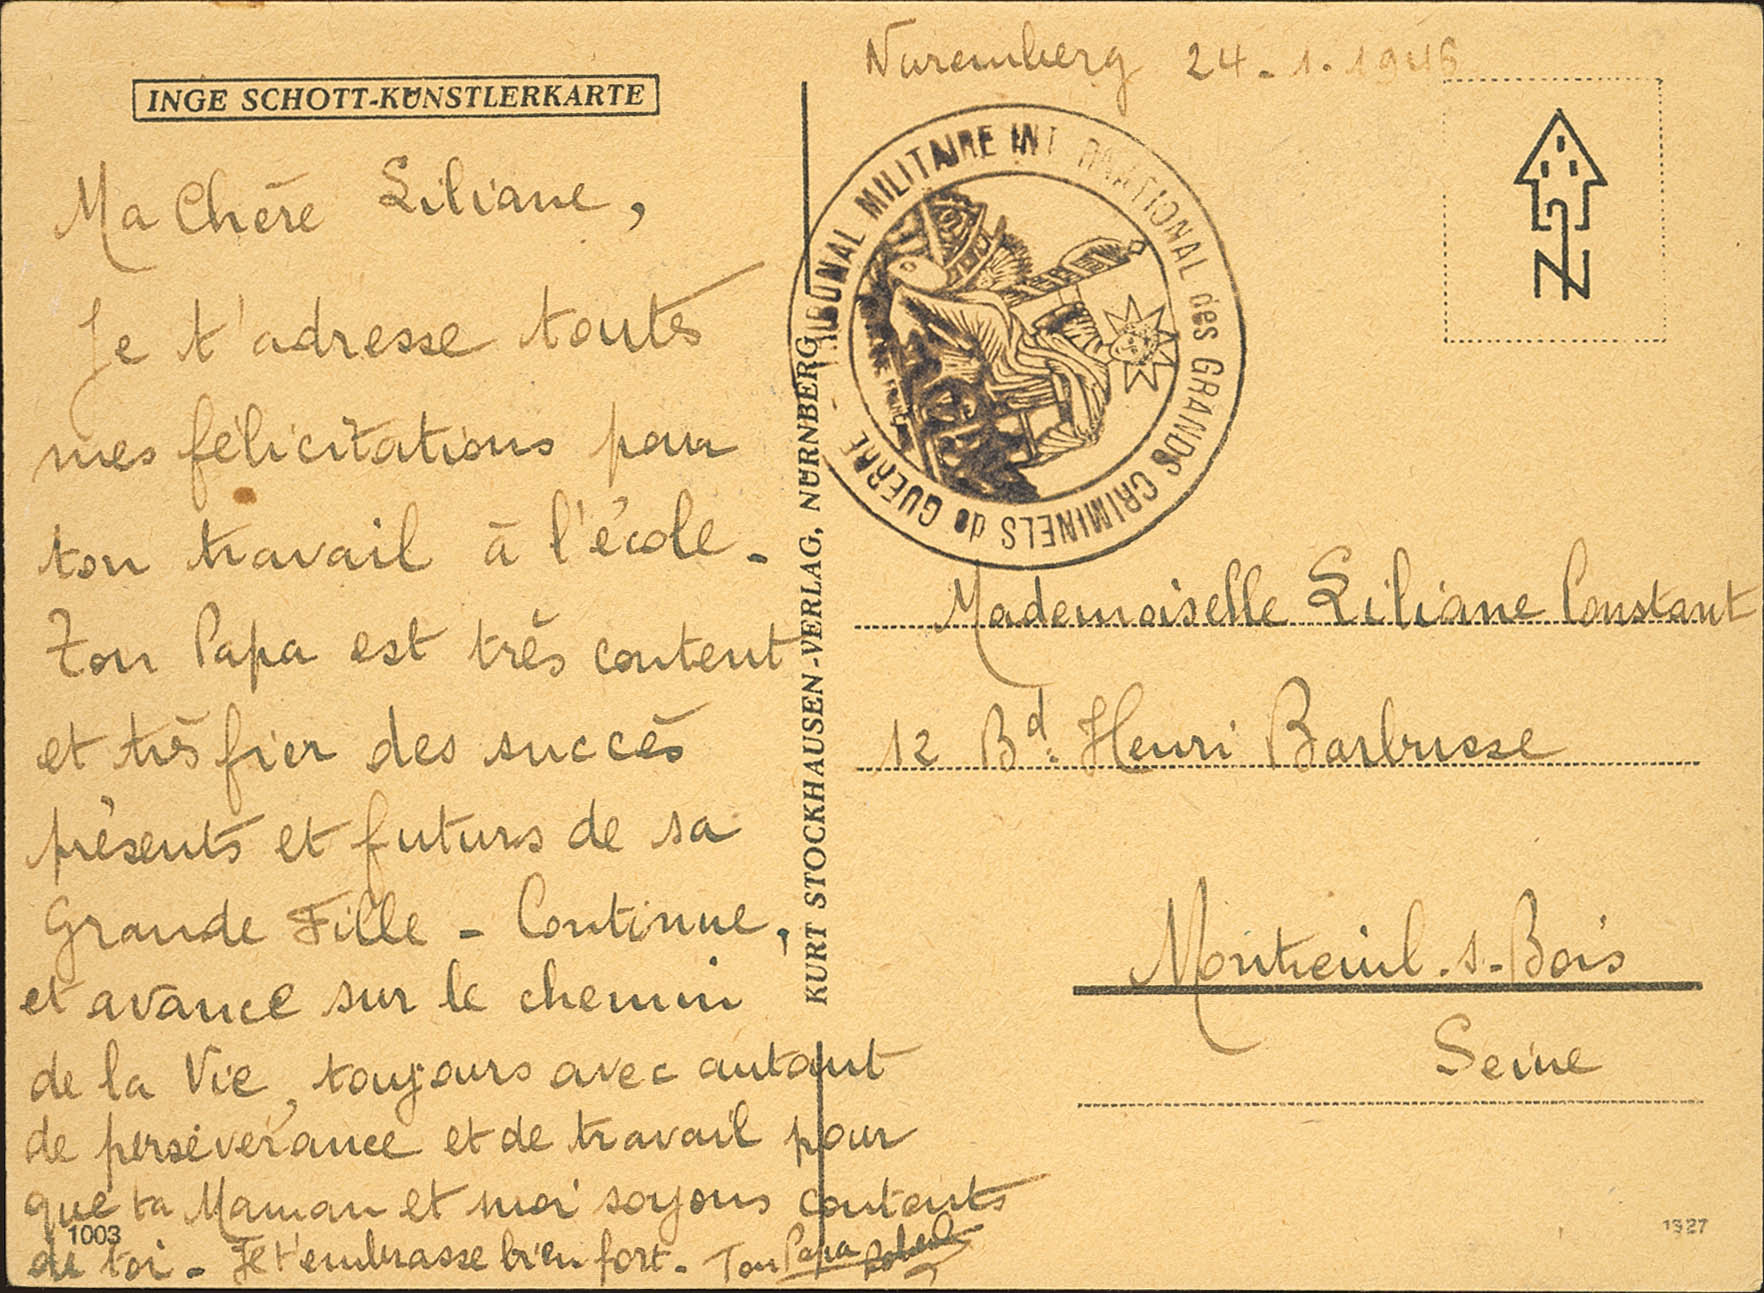 Nuremberg 24-1.1946
INGE SCHOTT-KÜNSTLERKARTE
Ma Chère Liliane,
Je t'adresse toutes
mes félicitations pour
ton travail à l'école -
Ton Papa est très content
et très fier des succès
présents et futurs de sa
Grande Fille - Continue,
et avance sur le chemin
de la Vie, toujours avec autant
de persévérance et de travail pour
que ta Maman et moi soyons contents
de toi - Je t'embrasse bien fort - Ton Papa Robert
1003
KURT STOCKHAUSEN-VERLAG, NÜRNBERG
TRIBUNAL MILITAIRE INTERNATIONAL des GRANDS CRIMINELS de GUERRE
N
Mademoiselle Liliane Constant
12 Bd: Henri Barbusse
Montreuil-s-Bois
Seine
1327